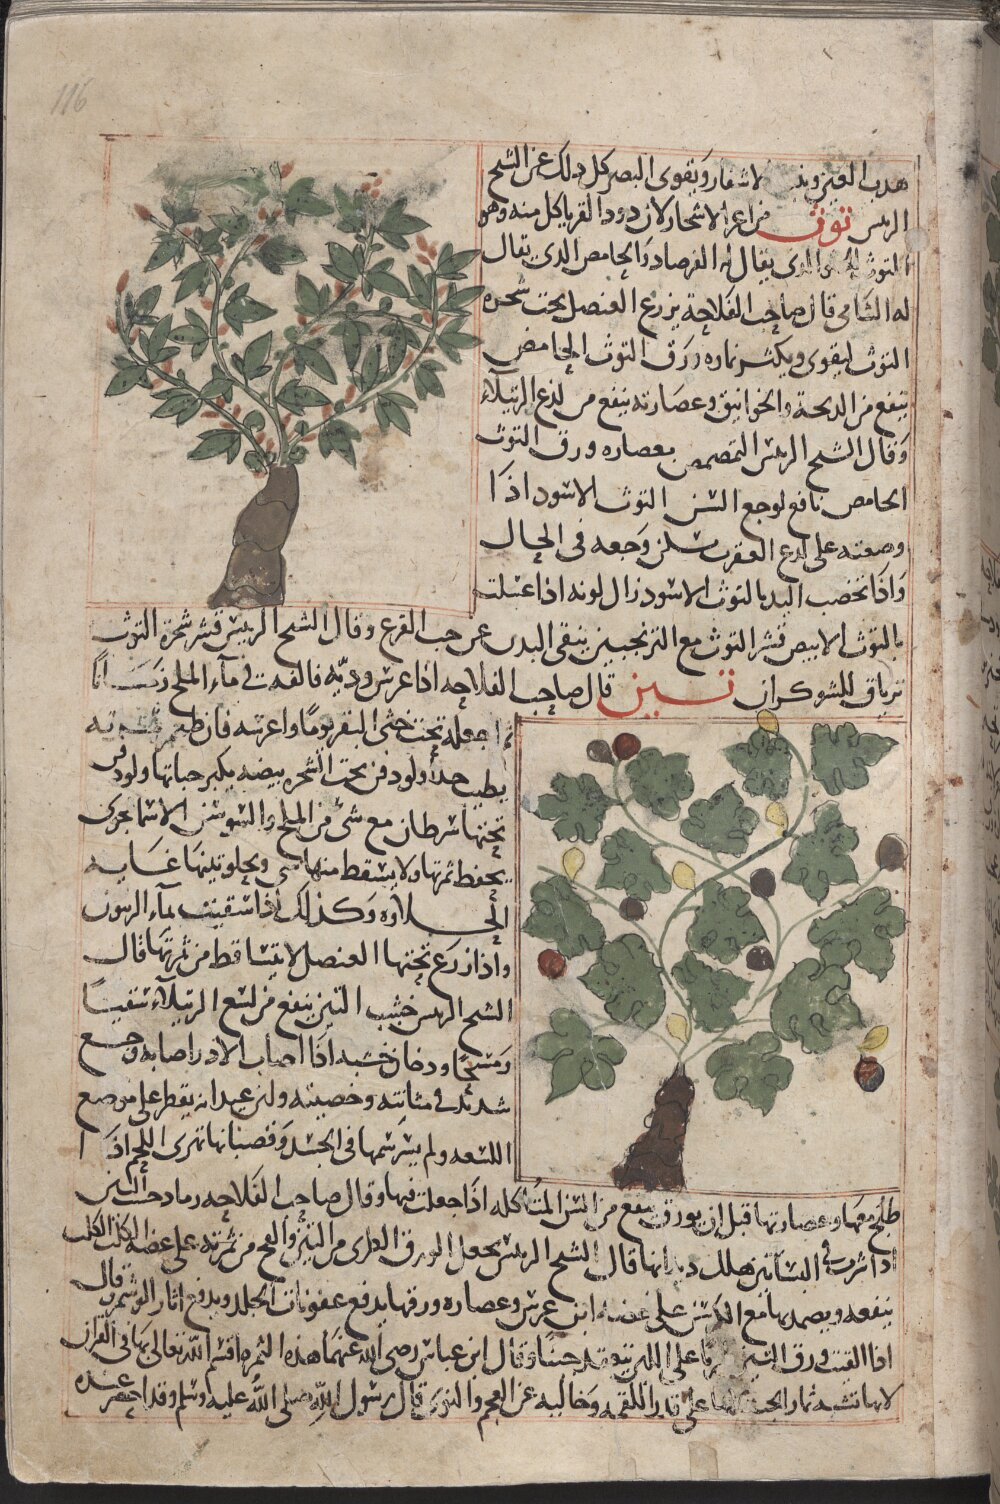 116
هدب العين وينبت الاشفار ويقوى البصر كل ذلك عن الشيخ
الرئيس توث من اعز الاشجار لان دود القز ياكل منه وهو
التوث الحلو الذى يقال له الفرصاد والحامض الذى يقال
له الشامى قال صاحب الفلاحة يزرع العنصل تحت شجرة
التوث ليقوى ويكثر ثماره ورق التوث الحامض
ينفع من الذبحة والخوانيق وعصارته ينفع من لذع الرتيلآء
وقال الشيخ الرئيس التمضمض بعصاره ورق التوث
الحامض نافع لوجع السن التوث الاسود اذا
وضعته على لدغ العقرب سكن وجعه فى الحال
واذا تخضب اليد بالتوث الاسود زال لونه اذا غسلت
بالتوث الابيض قشر التوث مع الترنجبين ينقى البدن عن حب القرع وقال الشيخ الرئيس قشر شجرة التوث
ترياق للشوكران تين قال صاحب الفلاحه اذا غرس وديّه فالقه فى مآء الملح زمانا
ثم اجعله تحت خثى البقر يوما واغرسه فان طعم ثمرته
يطيب جدا ولو دفن تحت الشجره بيضه يكبر حباتها ولو دفن
تحتها سرطان مع شئ من الملح والسوسن الاسمانجونى
يحفظ ثمرتها ولا يسقط منها شى ويحلو تينها غايه
الحلاوه وكذلك اذا سقيت بمآء الزيتون
واذا زرع تحتها العنصل لا يتساقط من ثمرتها قال
الشيخ الرئيس خشب التين ينفع من لسع الرتيلآء سقيا
ومسحا ودخان خشبه اذا اصاب الادر اصابه وجع
شديد فى مثانته وخصيته ولبن عيدانه يقطر على موضع
اللسعه ولم يسر سمها فى الجسد وقضبانها تهرى اللحم اذا
طبخ معها وعصارتها قبل ان يورق ينفع من السن المتاكله اذا جعلت فيها وقال صاحب الفلاحه رماد خشب التين
اذا نثرت فى البساتين هلك ديدانها قال الشيخ الرئيس يجعل الورق الطرى من التين والفج من ثمرته على عضة الكلب الكلب
ينفعه ويضمد بها مع الكرسنة على عضة ابن عرس وعصاره ورقها يدفع عفونات الجلد ويدفع اثار الوشم وقال
اذا القيت ورق التين على اللبن ينعقد جبنا وقال ابن عباس رضى الله عنهما هذه الثمره اقسم الله تعالى بها فى القران
لانها تشبه ثمار الجنة لانها على قدر اللقمه وخاليه عن العجم والنوى قال رسول الله صلى الله عليه وسلم وقد احضر عنده